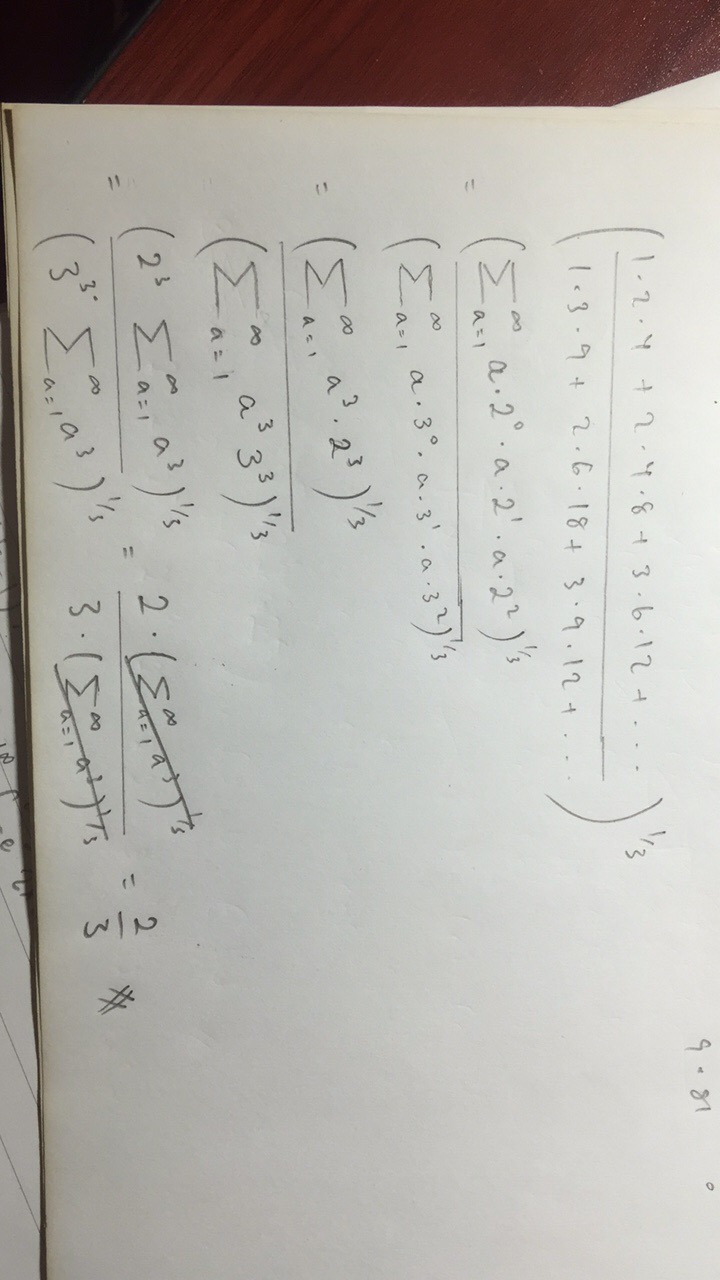 9 · 81
( (1·2·4 + 2·4·8 + 3·6·12 + ...) / (1·3·9 + 2·6·18 + 3·9·12 + ...) )^1/3
= (∑_{a=1}^∞ a·2^0·a·2^1·a·2^2)^1/3 / (∑_{a=1}^∞ a·3^0·a·3^1·a·3^2)^1/3
= (∑_{a=1}^∞ a^3·2^3)^1/3 / (∑_{a=1}^∞ a^3 3^3)^1/3
= (2^3 ∑_{a=1}^∞ a^3)^1/3 / (3^3· ∑_{a=1}^∞ a^3)^1/3 = 2·(∑_{a=1}^∞ a^3)^1/3 / 3·(∑_{a=1}^∞ a^3)^1/3 = 2/3 #